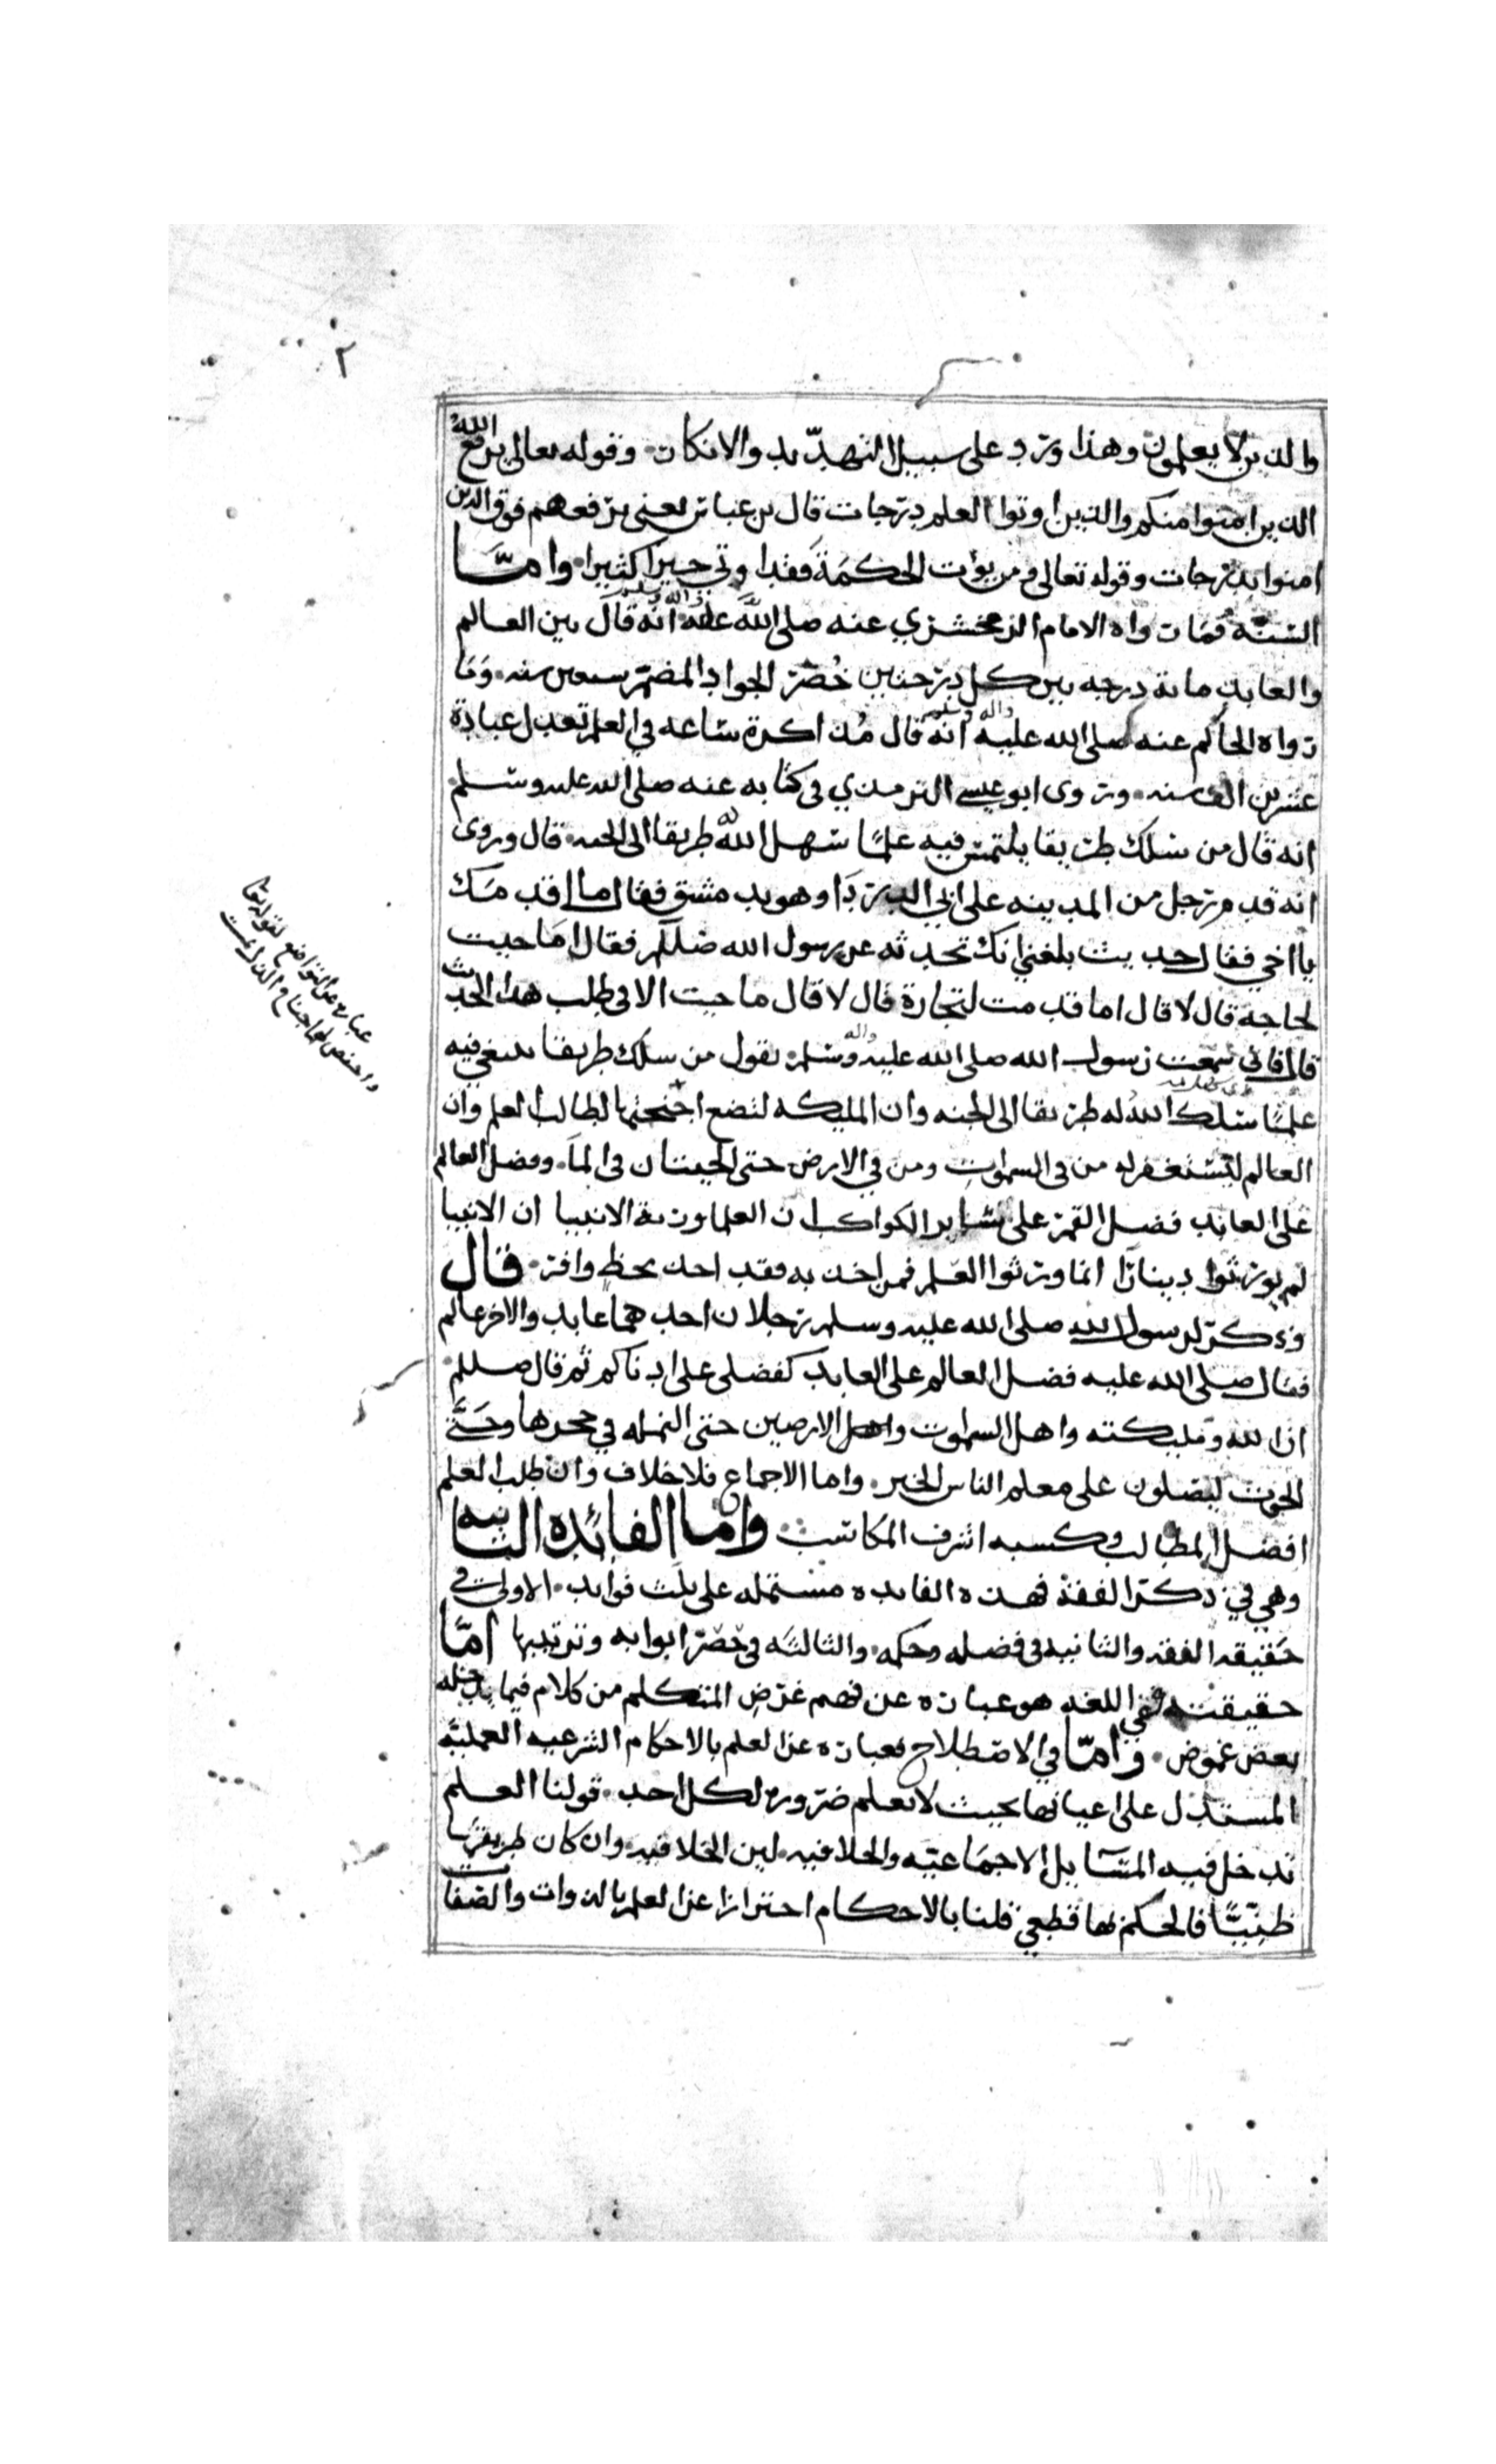 ٢
والذين لا يعلمون وهذا ورد على سبيل التهديد والانكار وقوله تعالى يرفع الله
الذين امنوا منكم والذين اوتوا العلم درجات قال بن عباس يعني يرفعهم فوق الذين
امنوا بدرجات وقوله تعالى ومن يؤت الحكمة فقد اوتي خيرا كثيرا واما
السنه فما رواه الامام الزمخشري عنه صلى الله عليه واله وسلم انه قال بين العالم
والعابد مائة درجه بين كل درجتين حُضر الجواد المضمر سبعين سنه وما
رواه الحاكم عنه صلى الله عليه واله وسلم انه قال مذاكرة ساعه في العلم تعدل عبادة
عشرين الف سنه وروى ابو عيسى الترمذي في كتابه عنه صلى الله عليه وسلم
انه قال من سلك طريقا يلتمس فيه علما سهل الله له طريقا الى الجنه قال وروى
انه قدم رجل من المدينه على ابي الدرداء وهو بدمشق فقال ما اقدمك
يا اخي فقال حديث بلغني انك تحدثه عن رسول الله صللم فقال اما جيت
لحاجه قال لا قال اما قدمت لتجارة قال لا قال ما جيت الا في طلب هذا الحديث
قال فاني سمعت رسول الله صلى الله عليه واله وسلم يقول من سلك طريقا يبتغي فيه
علما سلك الله له طريقا الى الجنه وان المليكه لتضع اجنحتها لطالب العلم وان
العالم ليستغفر له من في السموات ومن في الارض حتى الحيتان في الما وفضل العالم
على العابد فضل القمر على سائر الكواكب ان العلما ورثة الانبيا ان الانبيا
لم يورثوا دينارا انما ورثوا العلم فمن اخذ به فقد اخذ بحظ وافر قال
وذكر لرسول الله صلى الله عليه وسلم رجلان احدهما عابد والاخر عالم
فقال صلى الله عليه فضل العالم على العابد كفضلي على ادناكم ثم قال صللم
ان الله ومليكته واهل السموات واهل الارضين حتى النمله في جحرها وحتى
الحوت ليصلون على معلم الناس الخير واما الاجماع فلا خلاف وان طلب العلم
افضل المطالب وكسبه اشرف المكاسب واما الفائده الثانيه
وهي في ذكر الفقه فهذه الفايده مشتمله على ثلث فوايد الاولى في
حقيقه الفقه والثانيه في فضله وحكمه والثالثه في حصر ابوابه وترتيبها اما
حقيقته ففي اللغه هو عباره عن فهم غرض المتكلم من كلام فيما يدخله
بعض غموض واما في الاصطلاح فعباره عن العلم بالاحكام الشرعيه العمليه
المستدل على اعيانها بحيث لا يعلم ضروره لكل احد قولنا العلم
تدخل فيه المسايل الاجماعيه والخلافيه لين الخلافيه وان كان طريقها
ظنيا فالحكم بها قطعي قلنا بالاحكام احترازا عن العلم بالذوات والصفات
عباره عن التواضع لقوله تعا
واخفض لهما جناح الذل